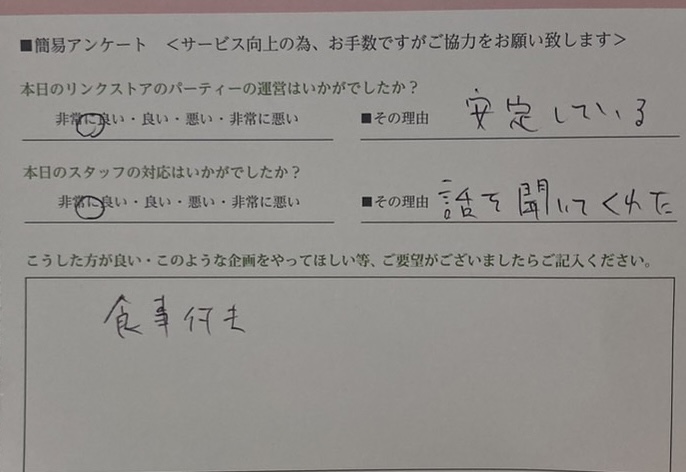 ■簡易アンケート <サービス向上の為、お手数ですがご協力をお願い致します>
本日のリンクストアのパーティーの運営はいかがでしたか?
非常に良い・良い・悪い・非常に悪い ■その理由 安定している
本日のスタッフの対応はいかがでしたか?
非常に良い・良い・悪い・非常に悪い ■その理由 話を聞いてくれた
こうした方が良い・このような企画をやってほしい等、ご要望がございましたらご記入ください。
食事付き